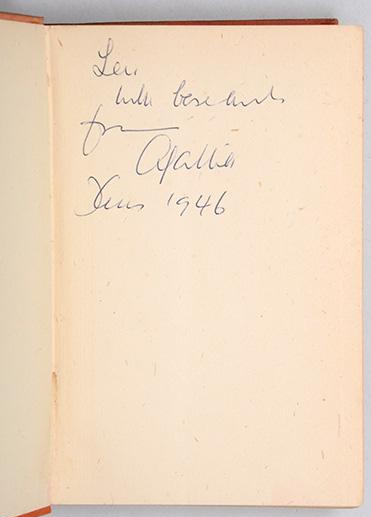 Len
with best wishes
from
Agatha
Xmas 1946